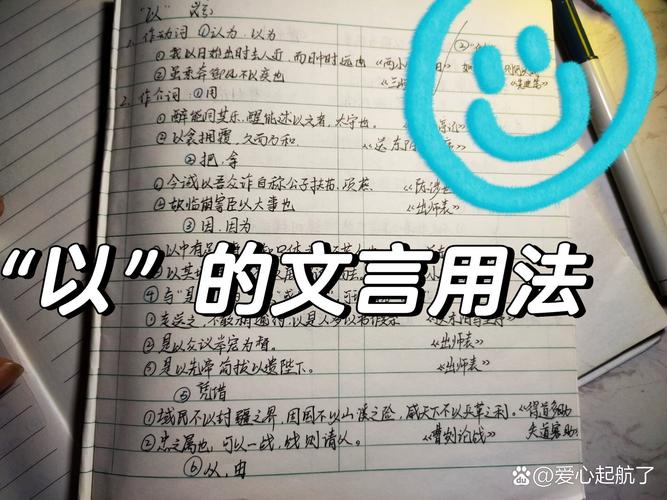 "以"
1. 作动词 ①认为、以为
①我以日始出时去人近，而日中时远也 《两小
②虽乘奔御风不以疾也 《三峡
2. 作介词：①用
①醉能同其乐，醒能述以文者，太守也。
②以衾拥覆，久而乃和 《送东阳
②把、拿
①今诚以吾众诈自称公子扶苏、项燕 《陈涉世
②故临崩寄臣以大事也 《出师表》
③因、因为
以中有足
②以其
"以"的文言用法
④与"是
《出师表》
②是以众议举宠为督。
③是以先帝简拔以遗陛下。 《出师表》
⑤凭借
①域民不以封疆之界，固国不以山溪之险，威天下不以兵革之利。《得道多助
②忠之属也，可以一战，战则请从。 《曹刿论战》 失道寡助》
⑥从、由
爱心起航了